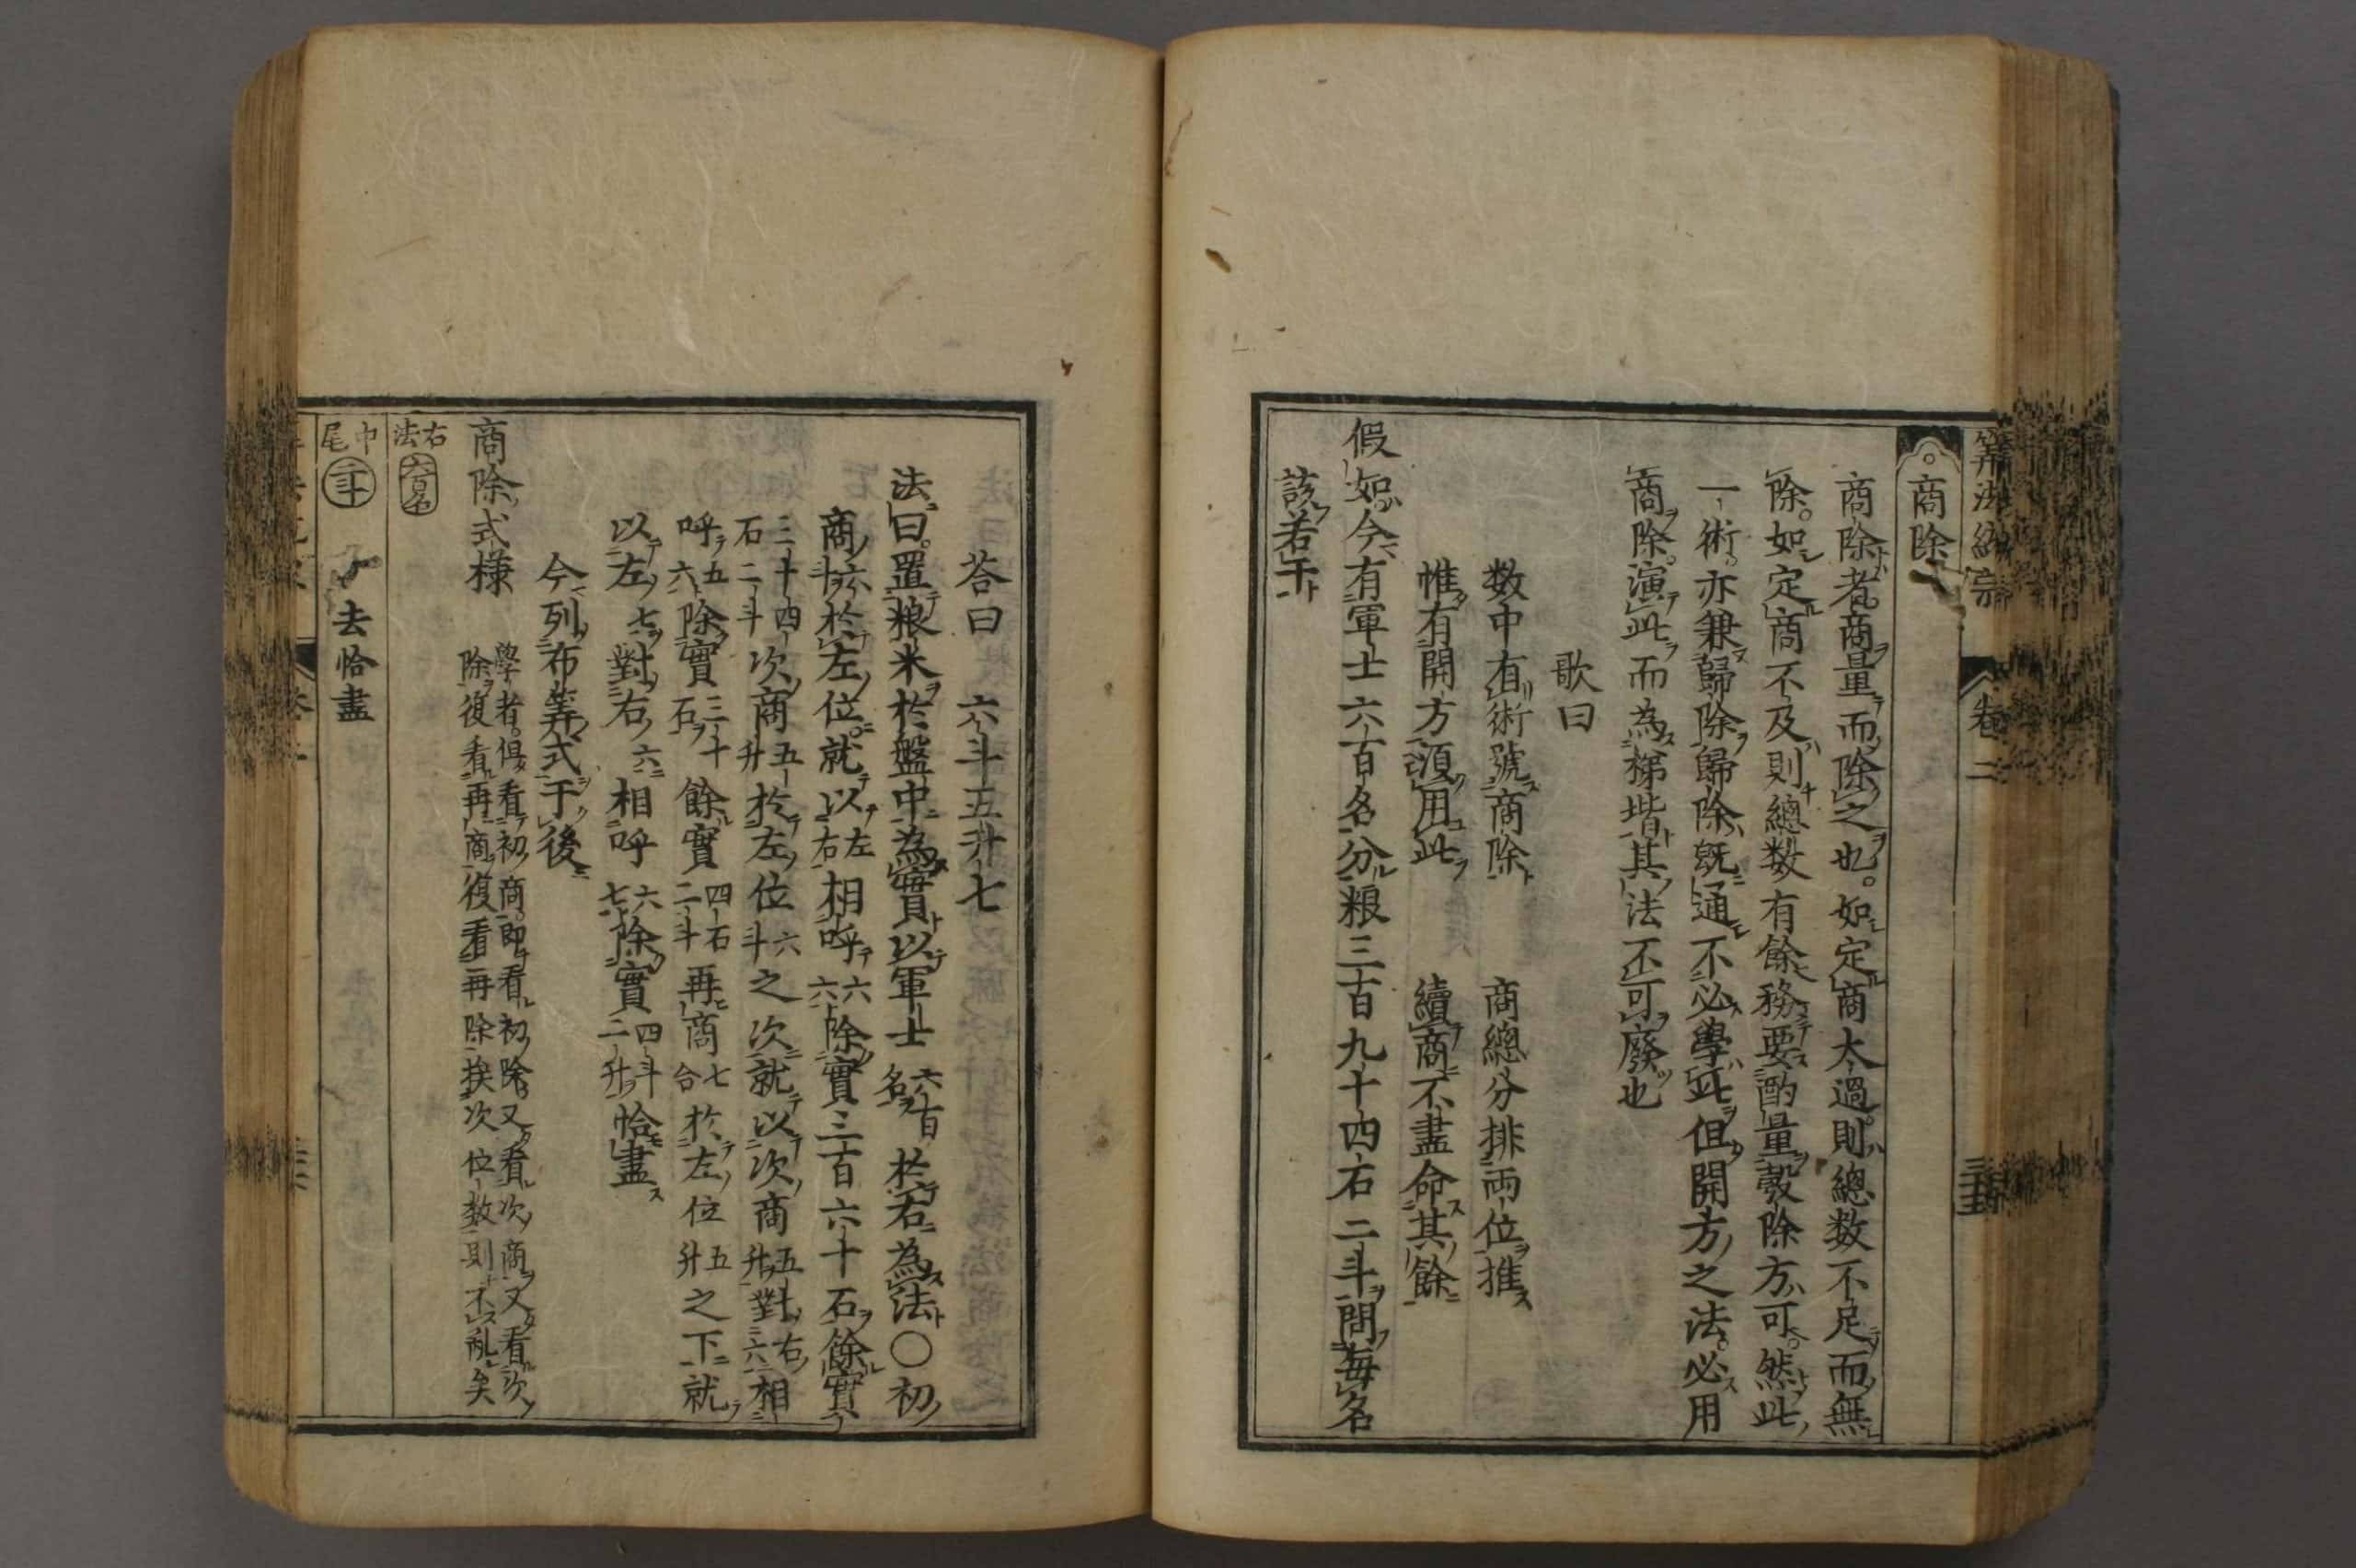 算法統宗　卷二
商除
商除者商量而除之也。如定商太過。則總数不足而無
除。如定商不及則總数有餘務要酌量。㝅除方可。然此
一術。亦兼歸除歸除既通不必學此但開方之法。必用
商除。演此而為梯堦其法不可廢也
歌曰
数中有術號商除　商總分排両位推
惟有開方須用此　續商不盡命其餘
假如今有軍士六百名分粮三百九十四石二斗問每名
該若干
荅曰　六斗五升七
法曰。置粮米於盤中為實以軍士六百名於右為法〇初
商六斗於左位。就以左右相呼六六除實三百六十石餘實
三十四石二斗次商五升於左位六斗之次就以次商五升對右六相
呼五六除實三十石餘實四石二斗再商七合於左位五升之下就
以左七對右六相呼六七除實四斗二升恰盡
今列布筭式于後
商除式樣　學者。俱看初商。即看初除。又看次商又看次
除復看再商復看再除挨次位数則不亂矣
右法　六百名
中尾　二斗　去恰盡